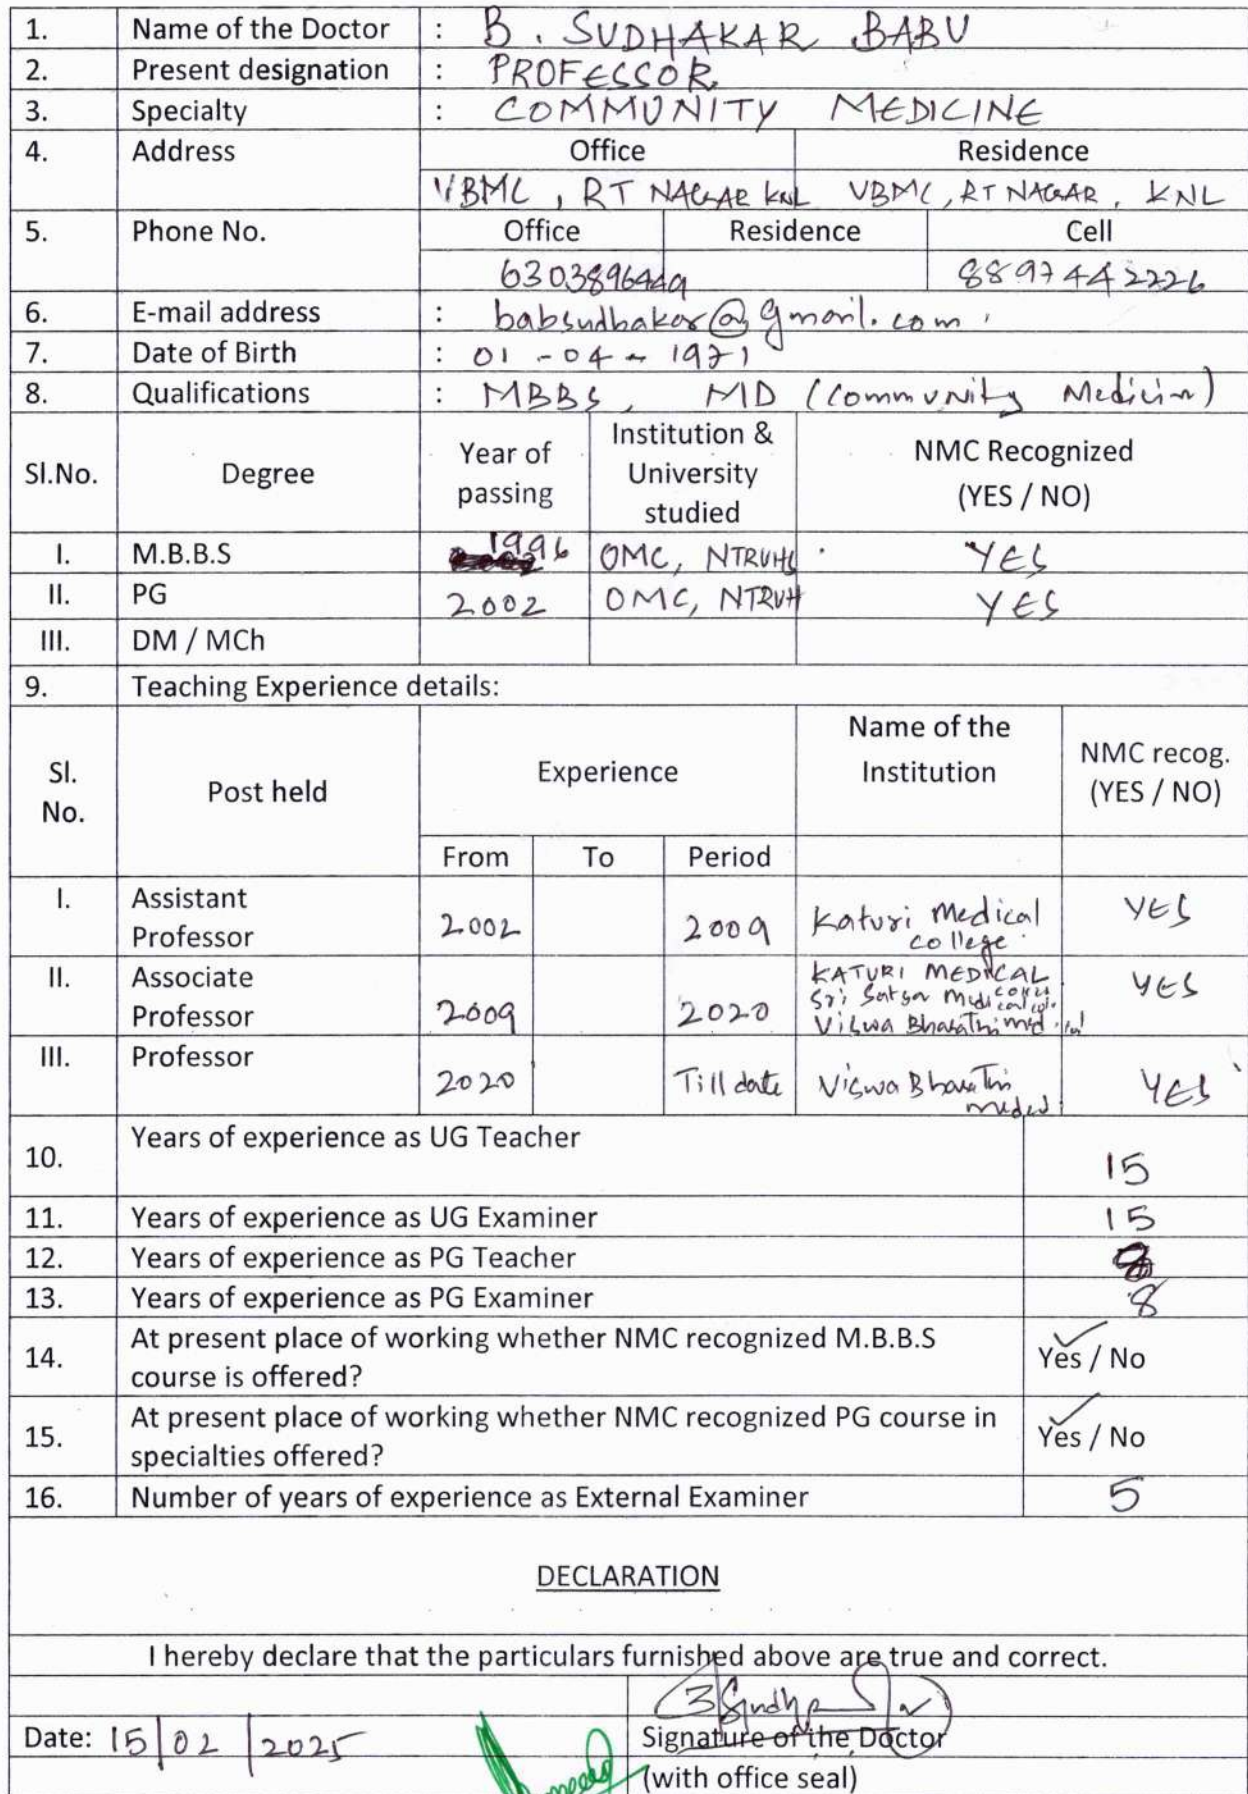 1. Name of the Doctor : B. SUDHAKAR BABU
2. Present designation : PROFESSOR
3. Specialty : COMMUNITY MEDICINE
4. Address Office Residence
VBMC, RT NAGAR KNL VBMC, RT NAGAR, KNL
5. Phone No. Office Residence Cell
6303896449 8897442226
6. E-mail address : babsudhakar@gmail.com
7. Date of Birth : 01-04-1971
8. Qualifications : MBBS, MD (Community Medicin)
Sl.No. Degree Year of passing Institution & University studied NMC Recognized (YES / NO)
I. M.B.B.S 1996 OMC, NTRUHS YES
II. PG 2002 OMC, NTRUH YES
III. DM / MCh
9. Teaching Experience details:
Sl. No. Post held Experience Name of the Institution NMC recog. (YES / NO)
From To Period
I. Assistant Professor 2002 2009 Katuri Medical college. YES
II. Associate Professor 2009 2020 KATURI MEDICAL
Sri Satya Medical col.
Viswa Bharathi med. YES
III. Professor 2020 Till date Viswa Bharathi YES
10. Years of experience as UG Teacher 15
11. Years of experience as UG Examiner 15
12. Years of experience as PG Teacher
13. Years of experience as PG Examiner 8
14. At present place of working whether NMC recognized M.B.B.S course is offered? Yes / No
15. At present place of working whether NMC recognized PG course in specialties offered? Yes / No
16. Number of years of experience as External Examiner 5
DECLARATION
I hereby declare that the particulars furnished above are true and correct.
Date: 15/02/2025 Signature of the Doctor
(with office seal)